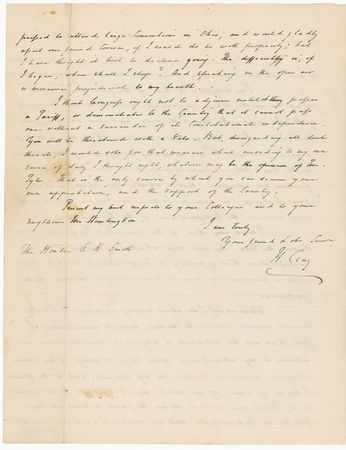 pressed to attend large Conventions in Ohio, and would gladly
spend one round Corwin, if I could do so with propriety; but
I have thought it best to decline going. The difficulty is, if
I begin, where shall I stop? And speaking in the open air
is moreover prejudicial to my health.
I think Congress ought not to adjourn until they pass
a Tariff, or demonstrate to the Country that it cannot pass
one without a surrender of its Constitutional independence.
You will be threatened with a Veto. But, disregarding all such
threats, I would vote for that measure which according to my own
sense of duty, I thought right, whatever may be the opinion of Mr.
Tyler. That is the only course by which you can secure your
own approbation, and the support of the Country.
Present my best respects to your Colleague and to your
neighbour Mr. Huntington.
I am truly
Your friend & ob. Serv.
H. Clay
The Honble